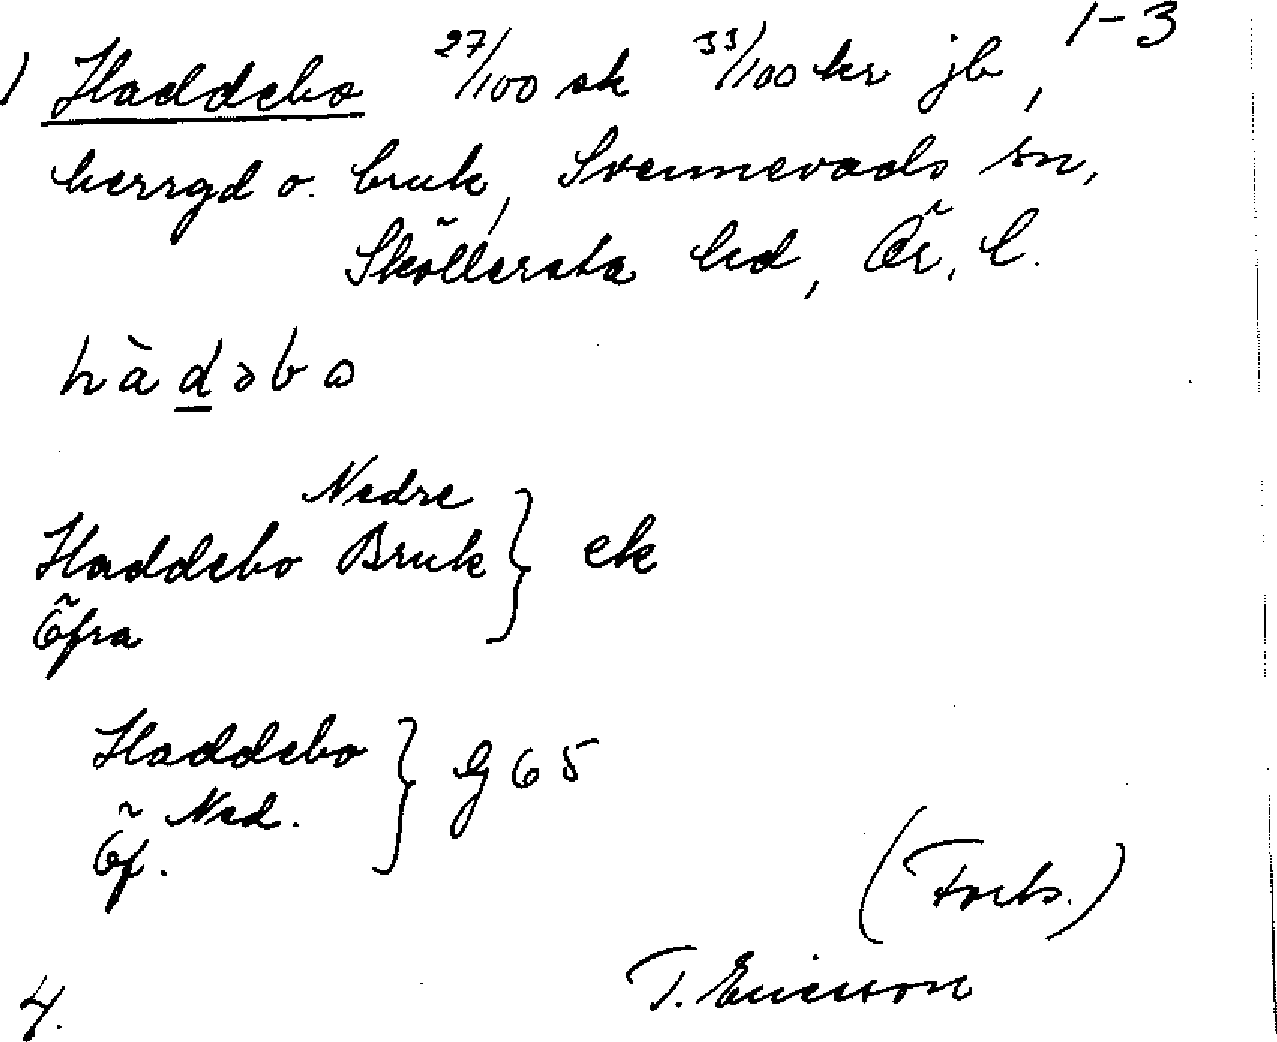 1-3
1 Haddebo 27/100 sk 33/100 kr jb,
herrgd o. bruk, Svennevads sn,
Sköllersta hd, Ör. l.
hàdəbo
Nedre
Haddebo Bruk } ek
Öfra
Haddebo } G 65
Ned.
Öf.
(Forts.)
T. Ericsson
4.